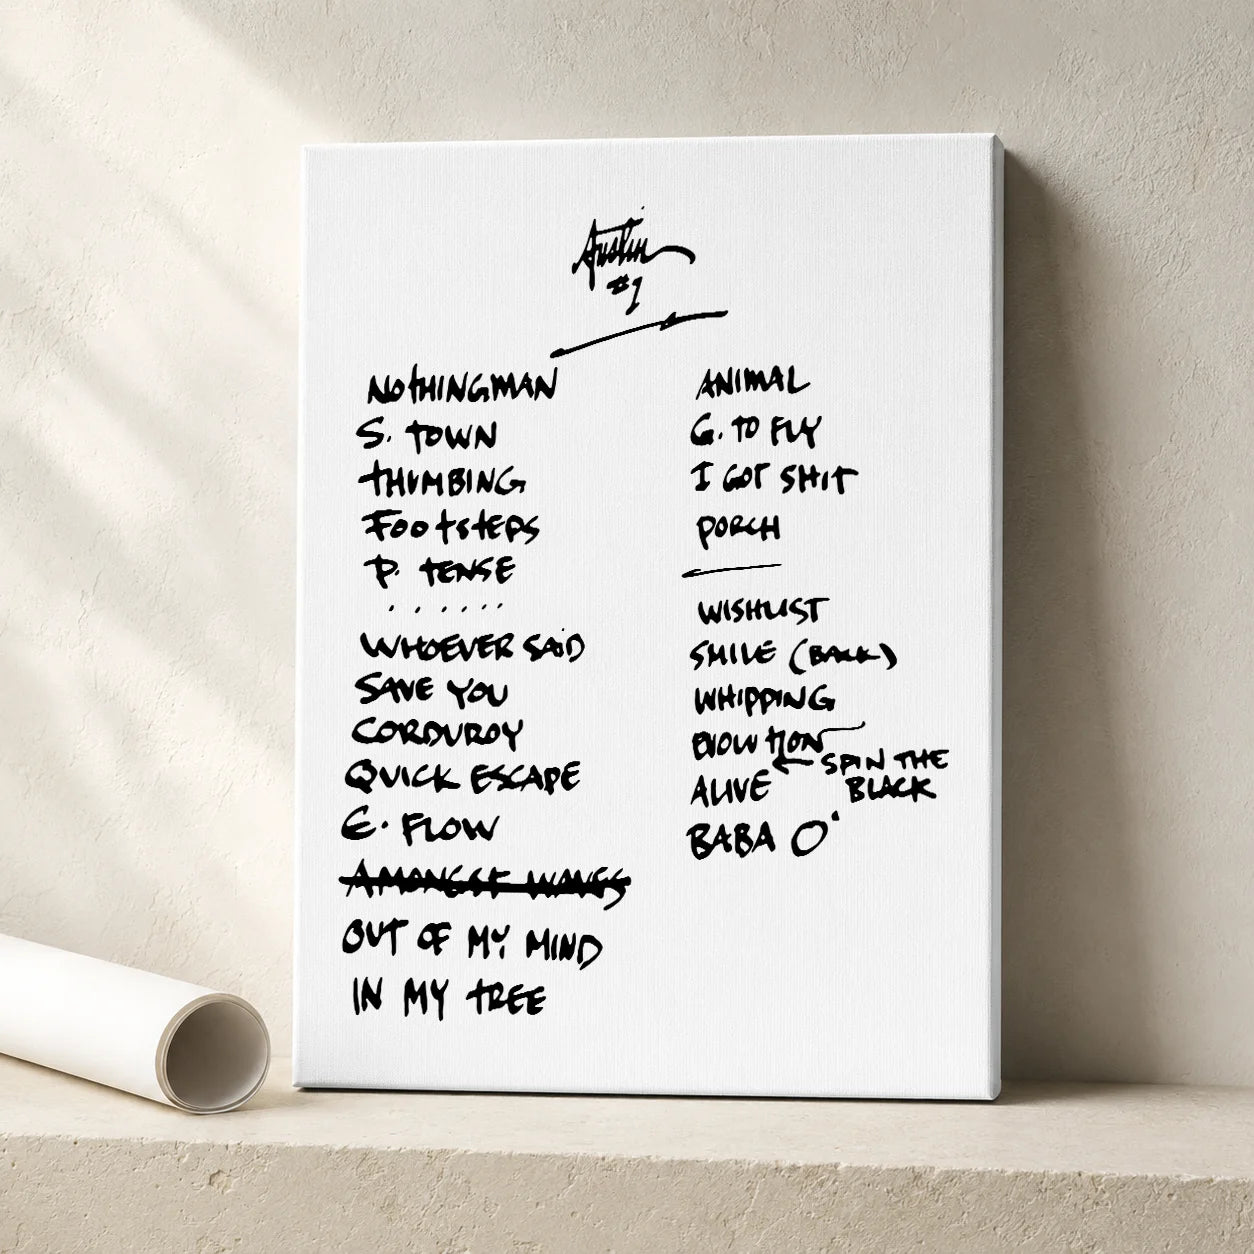 Austin
#1
NOTHINGMAN
S. TOWN
THUMBING
FOOTSTEPS
P. TENSE
......
WHOEVER SAID
SAVE YOU
CORDUROY
QUICK ESCAPE
E. FLOW
AMONGST WAVES
OUT OF MY MIND
IN MY TREE
ANIMAL
G. TO FLY
I GOT SHIT
PORCH
WISHLIST
SMILE (BACK)
WHIPPING
EVOLUTION
SPIN THE
BLACK
ALIVE
BABA O'